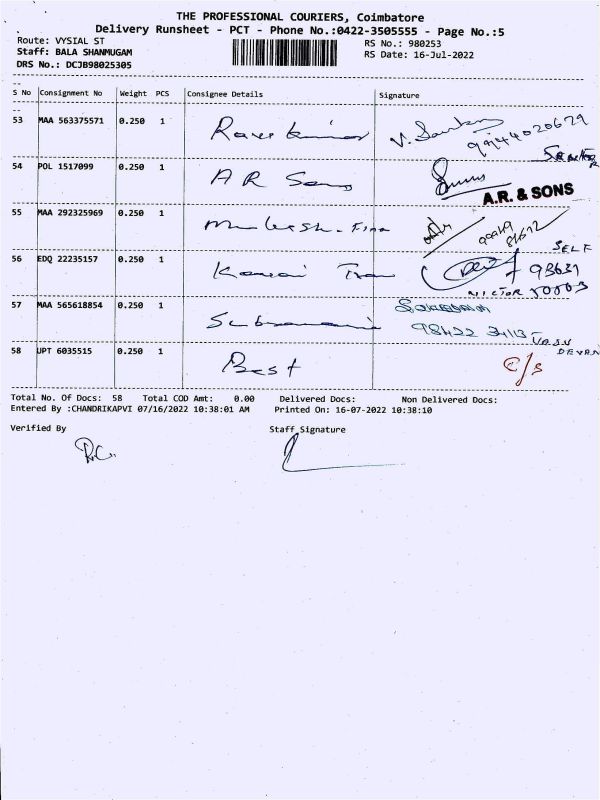 THE PROFESSIONAL COURIERS, Coimbatore
Delivery Runsheet - PCT - Phone No.:0422-3505555 - Page No.:5
Route: VYSIAL ST RS No.: 980253
Staff: BALA SHANMUGAM RS Date: 16-Jul-2022
DRS No.: DCJB98025305
S No Consignment No Weight PCS Consignee Details Signature
53 MAA 563375571 0.250 1 V. 9944020679
54 POL 1517099 0.250 1 A R Sons A.R. & SONS
55 MAA 292325969 0.250 1
SELF
56 EDQ 22235157 0.250 1 98631
VICTOR 50003
57 MAA 565618854 0.250 1 98422 34113 VASU
DEVAN
58 UPT 6035515 0.250 1 Best C/S
Total No. Of Docs: 58 Total COD Amt: 0.00 Delivered Docs: Non Delivered Docs:
Entered By :CHANDRIKAPVI 07/16/2022 10:38:01 AM Printed On: 16-07-2022 10:38:10
Verified By Staff Signature